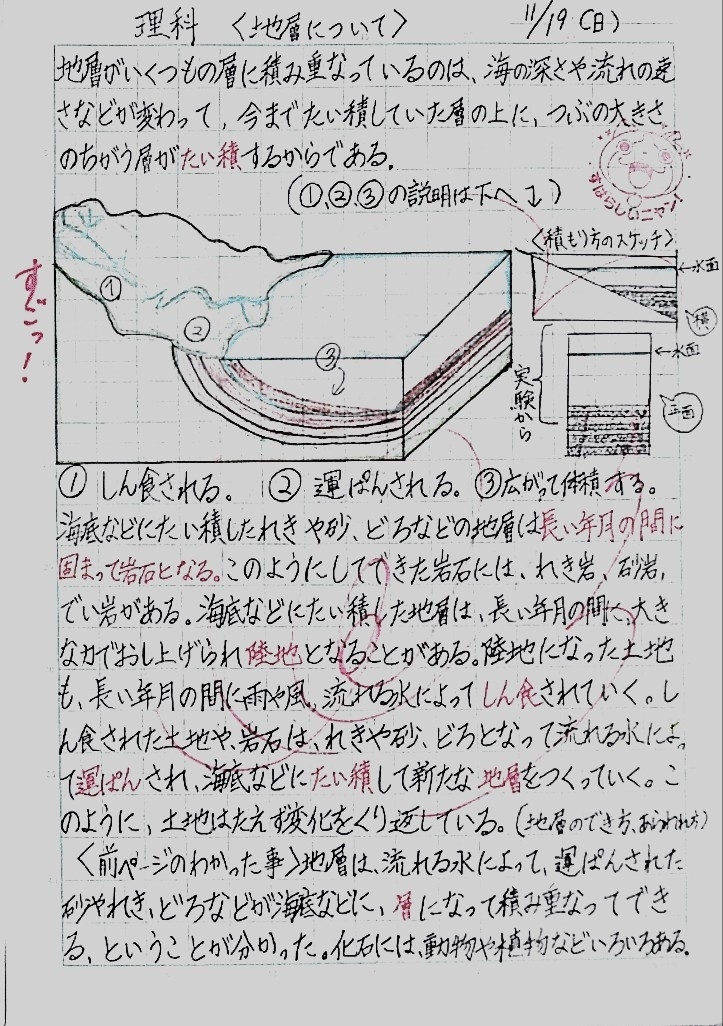 理科 〈地層について〉 11/19(日)
地層がいくつもの層に積み重なっているのは、海の深さや流れの速
さなどが変わって、今までたい積していた層の上に、つぶの大きさ
のちがう層がたい積するからである。
すばらしいニャン!
(①、②、③の説明は下へ↓)
〈積もり方のスケッチ〉
すごっ!
①
②
③
←水面
横
←水面
正面
実験から
① しん食される。 ② 運ぱんされる。 ③広がって体積する。
海底などにたい積したれきや砂、どろなどの地層は長い年月の間に
固まって岩石となる。このようにしてできた岩石には、れき岩、砂岩,
でい岩がある。海底などにたい積した地層は、長い年月の間に、大き
な力でおし上げられ陸地となることがある。陸地になった土地
も、長い年月の間に雨や風、流れる水によってしん食されていく。し
ん食された土地や、岩石は、れきや砂、どろとなって流れる水によっ
て運ぱんされ、海底などにたい積して新たな地層をつくっていく。こ
のように、土地はたえず変化をくり返している。(地層のでき方、あらわれ方)
〈前ページのわかった事〉地層は、流れる水によって、運ぱんされた
砂やれき、どろなどが海底などに、層になって積み重なってでき
る、ということが分かった。化石には、動物や植物などいろいろある。